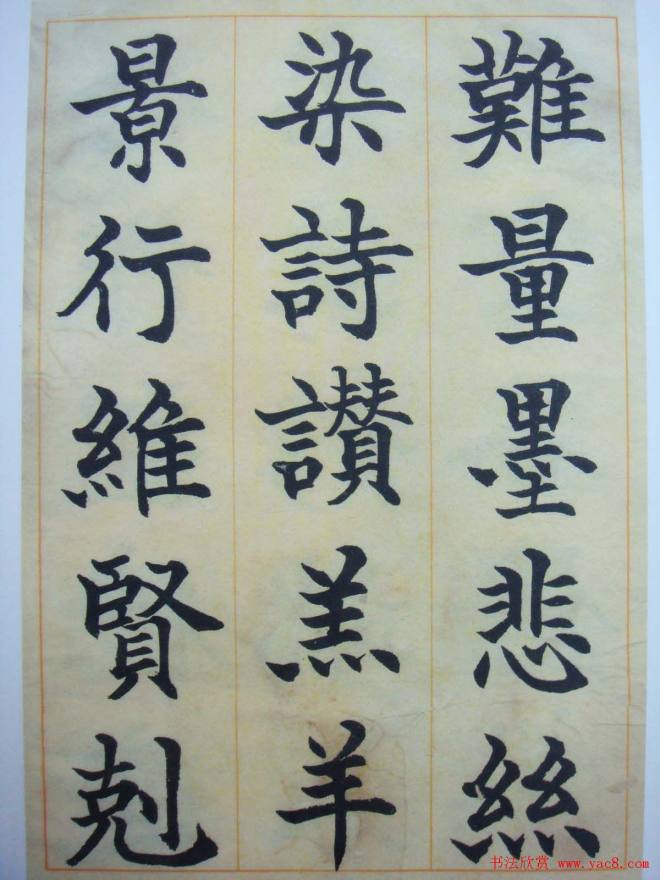 難量墨悲絲
染詩讚羔羊
景行維賢剋
书法欣赏 www.yac8.com